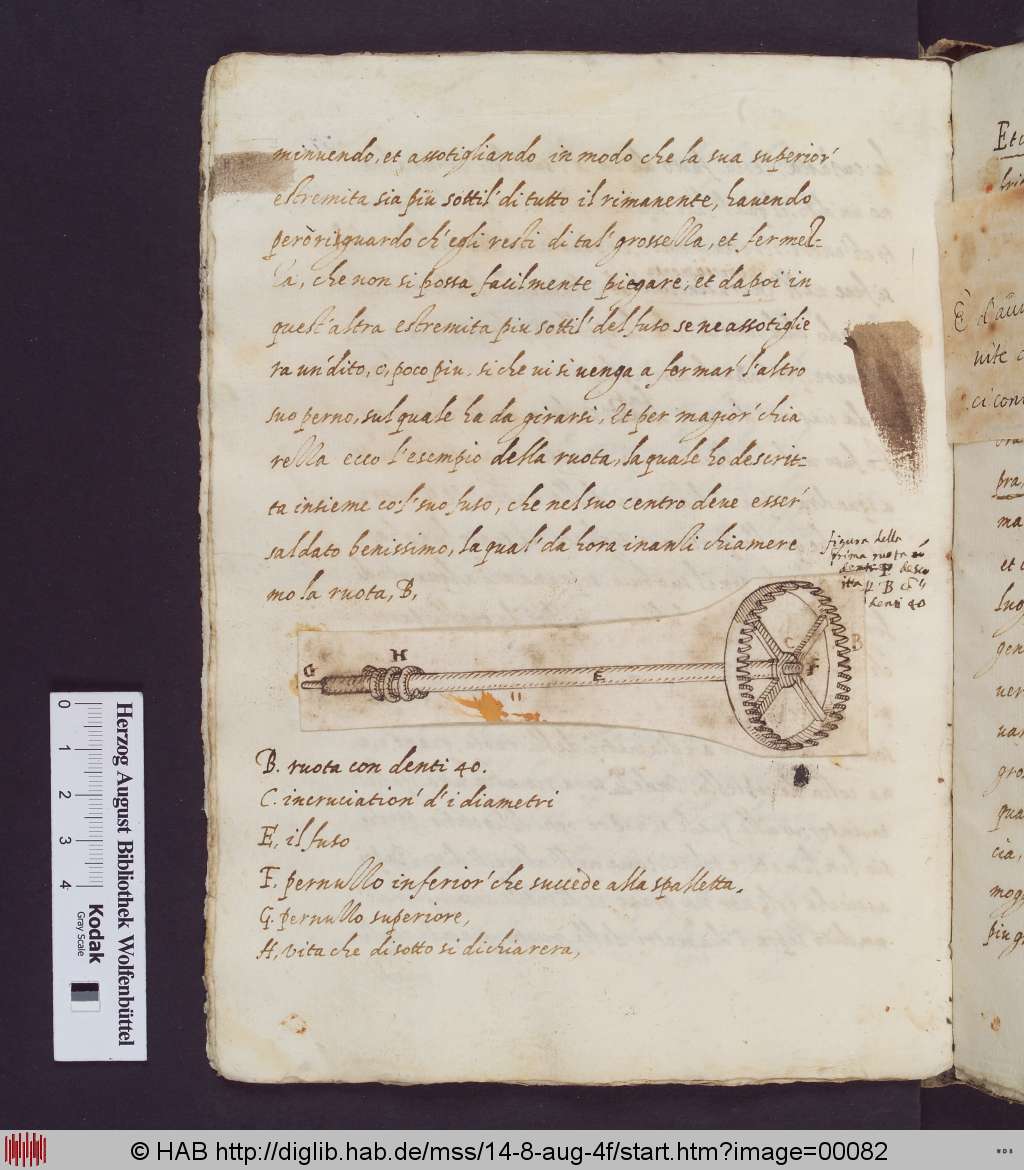 minuendo, et assotigliando in modo che la sua superior'
estremita sia più sottil' di tutto il rimanente, havendo
però risguardo ch'egli resti di tal' grossezza, et fermez-
za, che non si possa facilmente piegare, et dapoi in
quest'altra estremita piu sottil' del fuso se ne assotiglie
ra un'dito, o, poco piu, si che vi si venga a fermar' l'altro
suo perno, sul quale ha da girarsi, Et per magior' chia
rezza ecco l'esempio della ruota, la quale ho descrit-
ta insieme co'l suo fuso, che nel suo centro deve esser'
saldato benissimo, la qual' da hora inanzi chiamere
mo la ruota, B,
figura della
prima ruota
denti descr
itta p B
denti 40
G
H
E
C
F
B
B. ruota con denti 40.
C. incruciation' d'i diametri
E, il fuso
F. pernuzzo inferior' che succede alla spalletta.
G. pernuzzo superiore,
H, vita che di sotto si dichiarera,
Et
È d'au
vite
ci con
pra
ma
et
luo
gen
ver
gro
qua
cia,
mog
piu g
0
1
2
3
4
Kodak
Gray Scale
Herzog August Bibliothek Wolfenbüttel
© HAB http://diglib.hab.de/mss/14-8-aug-4f/start.htm?image=00082